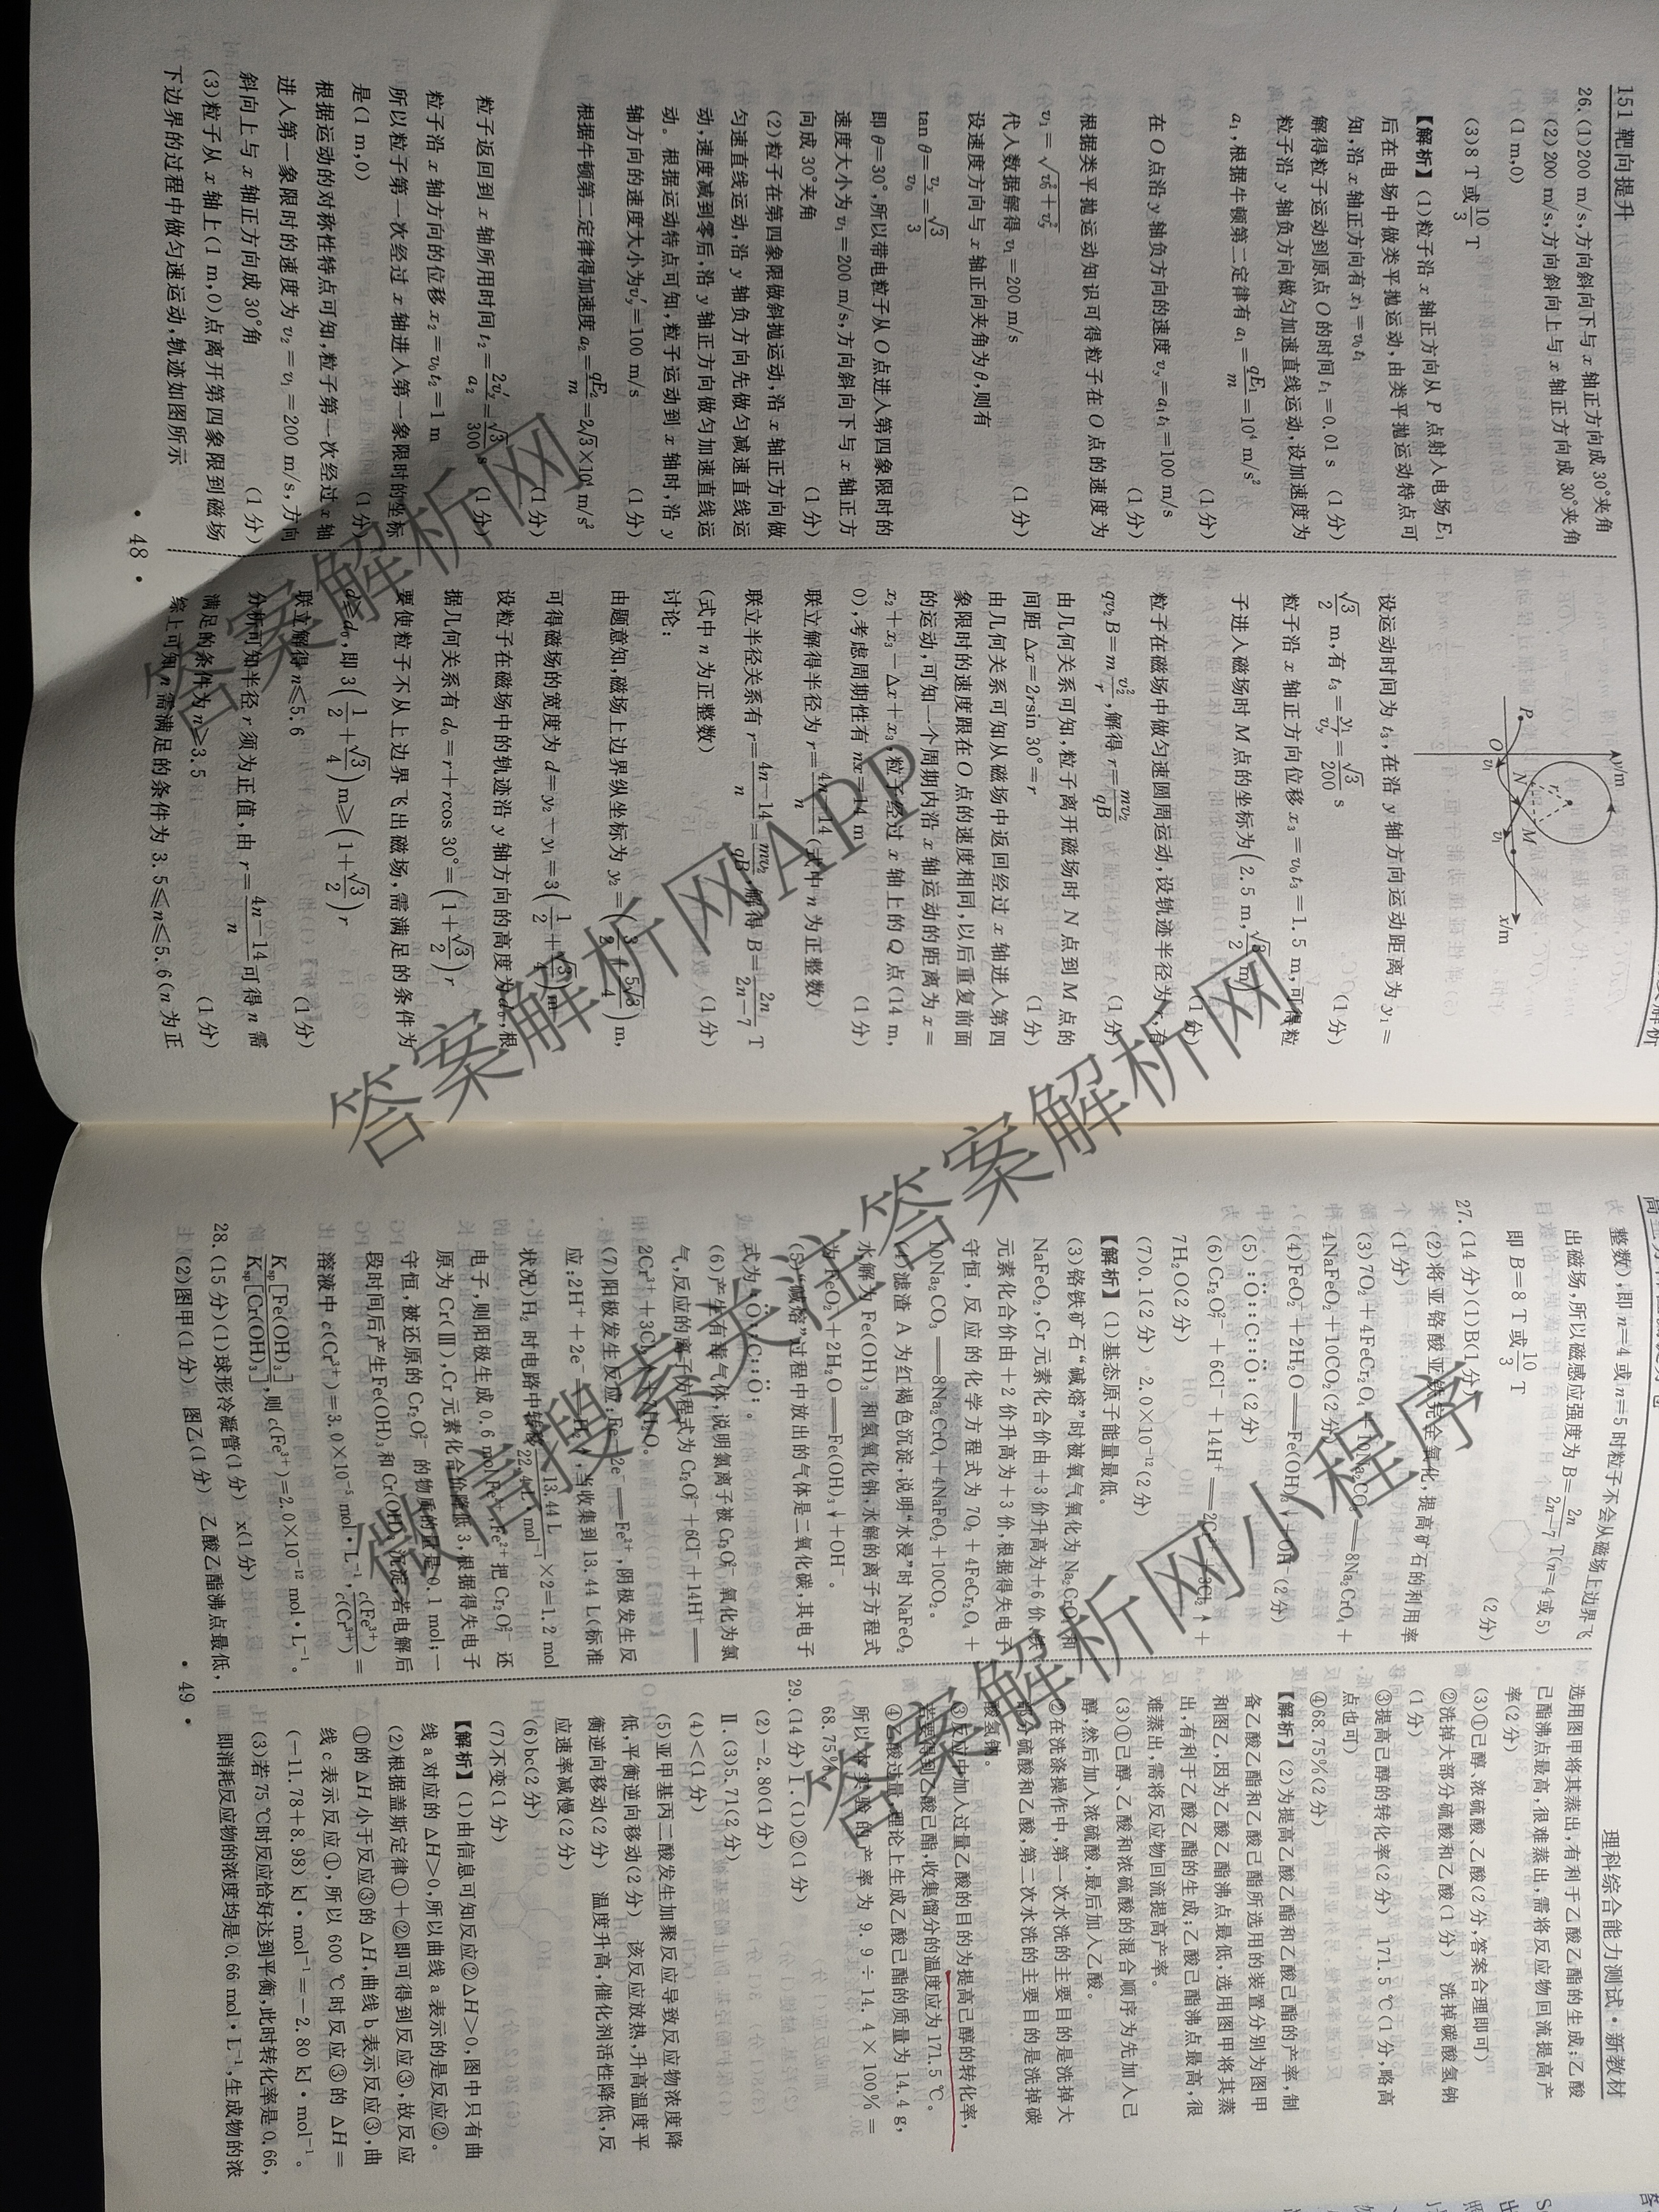 151 靶向提升
26.(1)200 m/s,方向斜向下与 x 轴正方向成 30°夹角
(2)200 m/s,方向斜向上与 x 轴正方向成 30°夹角
(1 m,0)
(3)8 T 或 10/3 T
【解析】(1)粒子沿 x 轴正方向从 P 点射入电场 E₁
后在电场中做类平抛运动,由类平抛运动特点可
知,沿 x 轴正方向有 x₁=v₀t₁
解得粒子运动到原点 O 的时间 t₁=0.01 s (1 分)
粒子沿 y 轴负方向做匀加速直线运动,设加速度为
a₁,根据牛顿第二定律有 a₁=qE₁/m=10⁴ m/s²
(1 分)
在 O 点沿 y 轴负方向的速度 v_y=a₁t₁=100 m/s
(1 分)
根据类平抛运动知识可得粒子在 O 点的速度为
v₁=√(v₀²+v_y²)
代入数据解得 v₁=200 m/s (1 分)
设速度方向与 x 轴正向夹角为 θ,则有
tan θ=v_y/v₀=√3/3
即 θ=30°,所以带电粒子从 O 点进入第四象限时的
速度大小为 v₁=200 m/s,方向斜向下与 x 轴正方
向成 30°夹角 (1 分)
(2)粒子在第四象限做斜抛运动,沿 x 轴正方向做
匀速直线运动,沿 y 轴负方向先做匀减速直线运
动,速度减到零后,沿 y 轴正方向做匀加速直线运
动。根据运动特点可知,粒子运动到 x 轴时,沿 y
轴方向的速度大小为 v_y′=100 m/s (1 分)
根据牛顿第二定律得加速度 a₂=qE₂/m=2√3×10⁴ m/s²
(1 分)
粒子返回到 x 轴所用时间 t₂=2v_y′/a₂=√3/300 s (1 分)
粒子沿 x 轴方向的位移 x₂=v₀t₂=1 m
所以粒子第一次经过 x 轴进入第一象限时的坐标
是(1 m,0) (1 分)
根据运动的对称性特点可知,粒子第一次经过 x 轴
进入第一象限时的速度为 v₂=v₁=200 m/s,方向
斜向上与 x 轴正方向成 30°角 (1 分)
(3)粒子从 x 轴上(1 m,0)点离开第四象限到磁场
下边界的过程中做匀速运动,轨迹如图所示
· 48 ·
y/m
P
O
v₁
N
M
v₁
r
x/m
设运动时间为 t₃,在沿 y 轴方向运动距离为 y₁=
√3/2 m,有 t₃=y₁/v_y=√3/200 s (1 分)
粒子沿 x 轴正方向位移 x₃=v₀t₃=1.5 m,可得粒
子进入磁场时 M 点的坐标为(2.5 m,√3/2 m)
(1 分)
粒子在磁场中做匀速圆周运动,设轨迹半径为 r,有
qv₂B=m v₂²/r,解得 r=mv₂/qB (1 分)
由几何关系可知,粒子离开磁场时 N 点到 M 点的
间距 Δx=2rsin 30°=r (1 分)
由几何关系可知从磁场中返回经过 x 轴进入第四
象限时的速度跟在 O 点的速度相同,以后重复前面
的运动,可知一个周期内沿 x 轴运动的距离为 x=
x₂+x₃-Δx+x₃,粒子经过 x 轴上的 Q 点(14 m,
0),考虑周期性有 nx=14 m (1 分)
联立解得半径为 r=(4n-14)/n(式中 n 为正整数)
联立半径关系有 r=(4n-14)/n=mv₂/qB,解得 B=2n/(2n-7) T
(式中 n 为正整数) (1 分)
讨论:
由题意知,磁场上边界纵坐标为 y₂=(3/2+5√3/4)m,
可得磁场的宽度为 d=y₂-y₁=3(1/2+√3/4)m
设粒子在磁场中的轨迹沿 y 轴方向的高度为 d₀,根
据几何关系有 d₀=r+rcos 30°=(1+√3/2)r
要使粒子不从上边界飞出磁场,需满足的条件为
d≥d₀,即 3(1/2+√3/4)m≥(1+√3/2)r
联立解得 n≤5.6 (1 分)
分析可知半径 r 须为正值,由 r=(4n-14)/n 可得 n 需
满足的条件为 n≥3.5 (1 分)
综上可知,n 需满足的条件为 3.5≤n≤5.6(n 为正
理科综合能力测试·新教材
整数),即 n=4 或 n=5 时粒子不会从磁场上边界飞
出磁场,所以磁感应强度为 B=2n/(2n-7) T(n=4 或 5)
即 B=8 T 或 10/3 T (2 分)
27.(14 分)(1)B(1 分)
(2)将亚铬酸亚铁完全氧化,提高矿石的利用率
(1 分)
(3)7O₂+4FeCr₂O₄+10Na₂CO₃══8Na₂CrO₄+
4NaFeO₂+10CO₂(2 分)
(4)FeO₂⁻+2H₂O══Fe(OH)₃↓+OH⁻(2 分)
(5):Ö::C::Ö:(2 分)
(6)Cr₂O₇²⁻+6Cl⁻+14H⁺══2Cr³⁺+3Cl₂↑+
7H₂O(2 分)
(7)0.1(2 分) 2.0×10⁻¹²(2 分)
【解析】(1)基态原子能量最低。
(3)铬铁矿石“碱熔”时被氧气氧化为 Na₂CrO₄和
NaFeO₂,Cr 元素化合价由+3 价升高为+6 价,铁
元素化合价由+2 价升高为+3 价,根据得失电子
守恒,反应的化学方程式为 7O₂+4FeCr₂O₄+
10Na₂CO₃══8Na₂CrO₄+4NaFeO₂+10CO₂。
(4)滤渣 A 为红褐色沉淀,说明“水浸”时 NaFeO₂
水解为 Fe(OH)₃ 和氢氧化钠,水解的离子方程式
为 FeO₂⁻+2H₂O══Fe(OH)₃↓+OH⁻。
(5)“碱熔”过程中放出的气体是二氧化碳,其电子
式为:Ö::C::Ö:。
(6)产生有毒气体,说明氯离子被 Cr₂O₇²⁻氧化为氯
气,反应的离子方程式为 Cr₂O₇²⁻+6Cl⁻+14H⁺══
2Cr³⁺+3Cl₂↑+7H₂O。
(7)阳极发生反应:Fe-2e⁻══Fe²⁺,阴极发生反
应:2H⁺+2e⁻══H₂↑,当收集到 13.44 L(标准
状况)H₂ 时电路中转移 13.44 L/22.4 L·mol⁻¹×2=1.2 mol
电子,则阳极生成 0.6 mol Fe²⁺,Fe²⁺把 Cr₂O₇²⁻还
原为 Cr(Ⅲ),Cr 元素化合价降低 3,根据得失电子
守恒,被还原的 Cr₂O₇²⁻的物质的量是 0.1 mol;一
段时间后产生Fe(OH)₃和 Cr(OH)₃沉淀,若电解后
溶液中,c(Cr³⁺)=3.0×10⁻⁵ mol·L⁻¹,c(Fe³⁺)/c(Cr³⁺)=
Ksp[Fe(OH)₃]/Ksp[Cr(OH)₃],则 c(Fe³⁺)=2.0×10⁻¹² mol·L⁻¹。
28.(15 分)(1)球形冷凝管(1 分) x(1 分)
(2)图甲(1 分) 图乙(1 分) 乙酸乙酯沸点最低,
· 49 ·
选用图甲将其蒸出,有利于乙酸乙酯的生成;乙酸
己酯沸点最高,很难蒸出,需将反应物回流提高产
率(2 分)
(3)①己醇、浓硫酸、乙酸(2 分,答案合理即可)
②洗掉大部分硫酸和乙酸(1 分) 洗掉碳酸氢钠
(1 分)
③提高己醇的转化率(2 分) 171.5 ℃(1 分,略高
点也可)
④68.75%(2 分)
【解析】(2)为提高乙酸乙酯和乙酸己酯的产率,制
备乙酸乙酯和乙酸己酯所选用的装置分别为图甲
和图乙,因为乙酸乙酯沸点最低,选用图甲将其蒸
出,有利于乙酸乙酯的生成;乙酸己酯沸点最高,很
难蒸出,需将反应物回流提高产率。
(3)①己醇、乙酸和浓硫酸的混合顺序为先加入己
醇,然后加入浓硫酸,最后加入乙酸。
②在洗涤操作中,第一次水洗的主要目的是洗掉大
部分硫酸和乙酸,第二次水洗的主要目的是洗掉碳
酸氢钠。
③反应中加入过量乙酸的目的为提高己醇的转化率,
若要得到乙酸己酯,收集馏分的温度应为 171.5 ℃。
④乙酸过量,理论上生成乙酸己酯的质量为 14.4 g,
所以本实验的产率为 9.9÷14.4×100%=
68.75%。
29.(14 分)Ⅰ.(1)②(1 分)
(2)-2.80(1 分)
Ⅱ.(3)5.71(2 分)
(4)<(1 分)
(5)亚甲基丙二酸发生加聚反应导致反应物浓度降
低,平衡逆向移动(2 分) 该反应放热,升高温度平
衡逆向移动(2 分) 温度升高,催化剂活性降低,反
应速率减慢(2 分)
(6)bc(2 分)
(7)不变(1 分)
【解析】(1)由信息可知反应②ΔH>0,图中只有曲
线 a 对应的 ΔH>0,所以曲线 a 表示的是反应②。
(2)根据盖斯定律①+②即可得到反应③,故反应
①的 ΔH 小于反应③的 ΔH,曲线 b 表示反应③,曲
线 c 表示反应①,所以 600 ℃时反应③的 ΔH=
(-11.78+8.98) kJ·mol⁻¹=-2.80 kJ·mol⁻¹。
(3)若 75 ℃时反应恰好达到平衡,此时转化率是 0.66,
即消耗反应物的浓度均是 0.66 mol·L⁻¹,生成物的浓
答案解析网
答案解析网APP
微信搜索关注答案解析网
答案解析网小程序